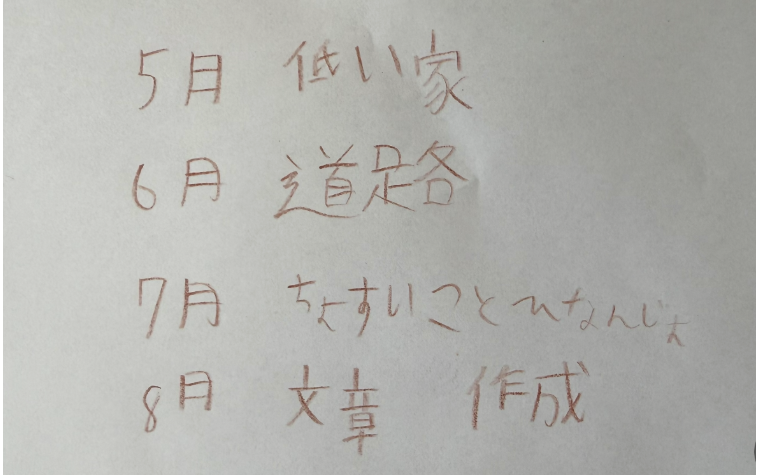 5月 低い家
6月 道路
7月 ちょすいことひなんじょ
8月 文章 作成